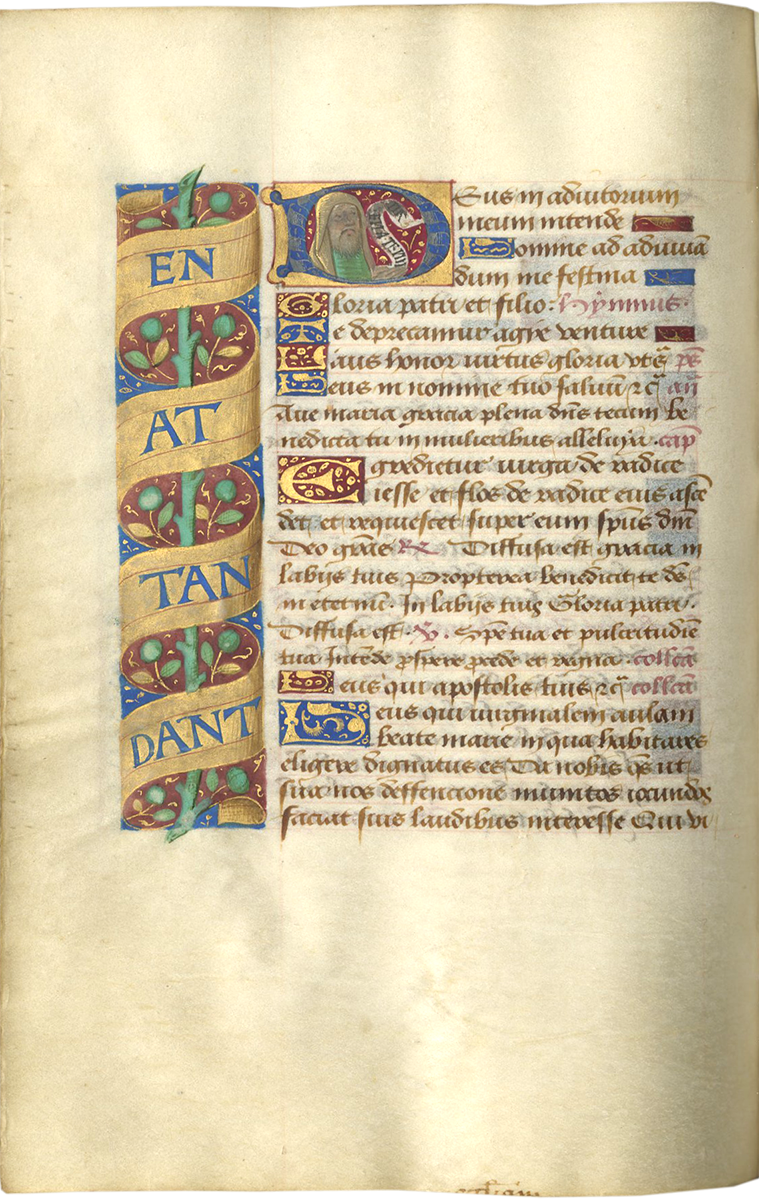 EN
AT
TAN
DANT
Deus in adiutorium
meum intende
Domine ad adiuuā
dum me festina
Gloria patri et filio. hỹmnus.
Te deprecamur agye venture
Laus honor uirtus gloria
Deus in nomine tuo saluū rc̄ añ
Aue maria gracia plena dn̄s tecum be
nedicta tu in mulieribus alleluya. cap̄
Egredietur uirga de radice
iesse et flos de radice eius ascē
det, et requiescet super eum spūs dn̄i
Deo grās Rx Diffusa est gracia in
labijs tuis Propterea benedicit te dē
in eternū. In labijs tuis Gloria patri.
Diffusa est. v̄. Spē tua et pulcritudiē
tua Intēde ꝓspere ꝓcede et regna. collecā
Deus qui apostolis tuis rc̄ collecā
Deus qui uirginalem aulam
beate marie in qua habitares
eligere dignatus es Da nobis qs ut
sua nos deffencione munitos iocundos
faciat suis laudibus interesse Qui vi